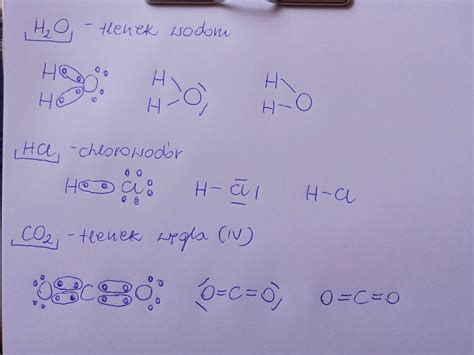 H₂O - tlenek wodoru
H H O H H O H H O
HCl - chlorowodór
H Cl H - Cl H - Cl
CO₂ - tlenek węgla (IV)
O C O O=C=O O=C=O